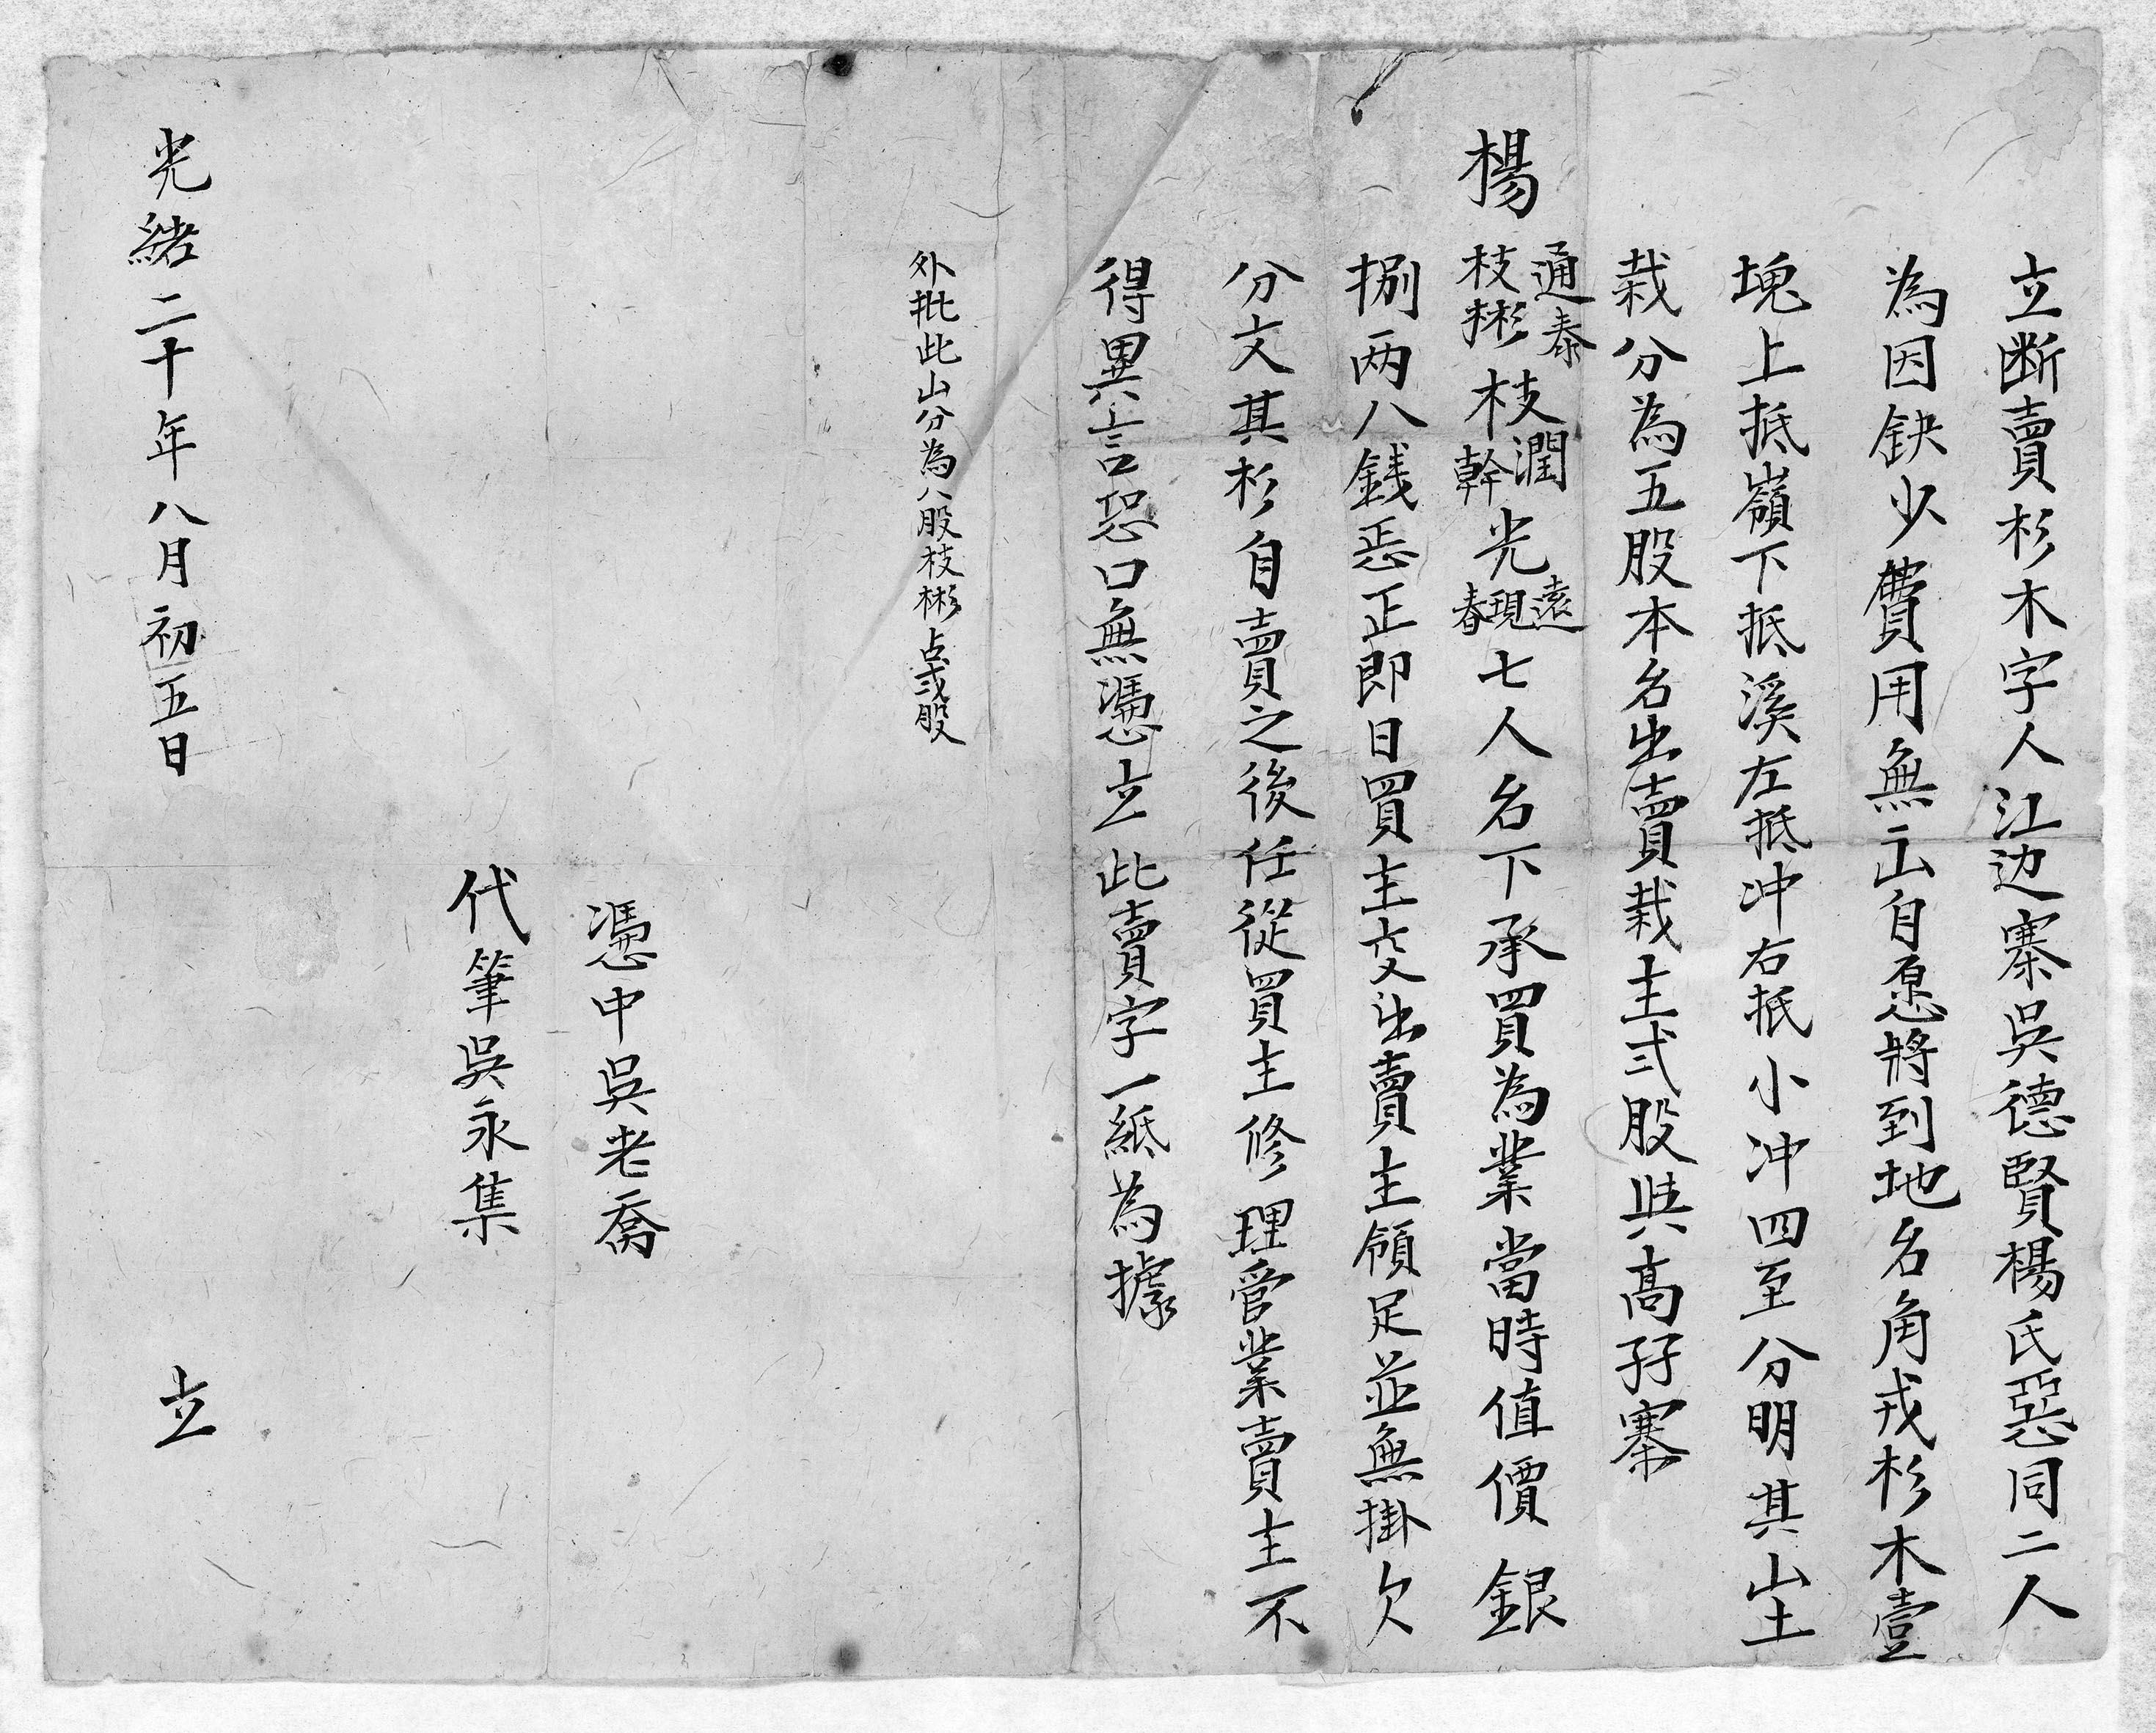 立断賣杉木字人江边寨吳德賢楊氏惡同二人
為因鈌少費用無亠山自愿將到地名角戎杉木壹
塊上抵嶺下抵溪左抵冲右抵小冲四至分明其山土
栽分為五股本名出賣栽主弍股與高孖寨
楊通泰枝彬枝潤幹光遠現春七人名下承買為業當時值價銀
捌两八錢㤫正即日買主交出賣主領足並無掛欠
分文其杉自賣之後任從買主修理管業賣主不
得異言恐口無憑立此賣字一紙為據
外批此山分為八股枝彬占弍股
憑中吳老喬
代筆吳永集
光緒二十年八月初五日 立